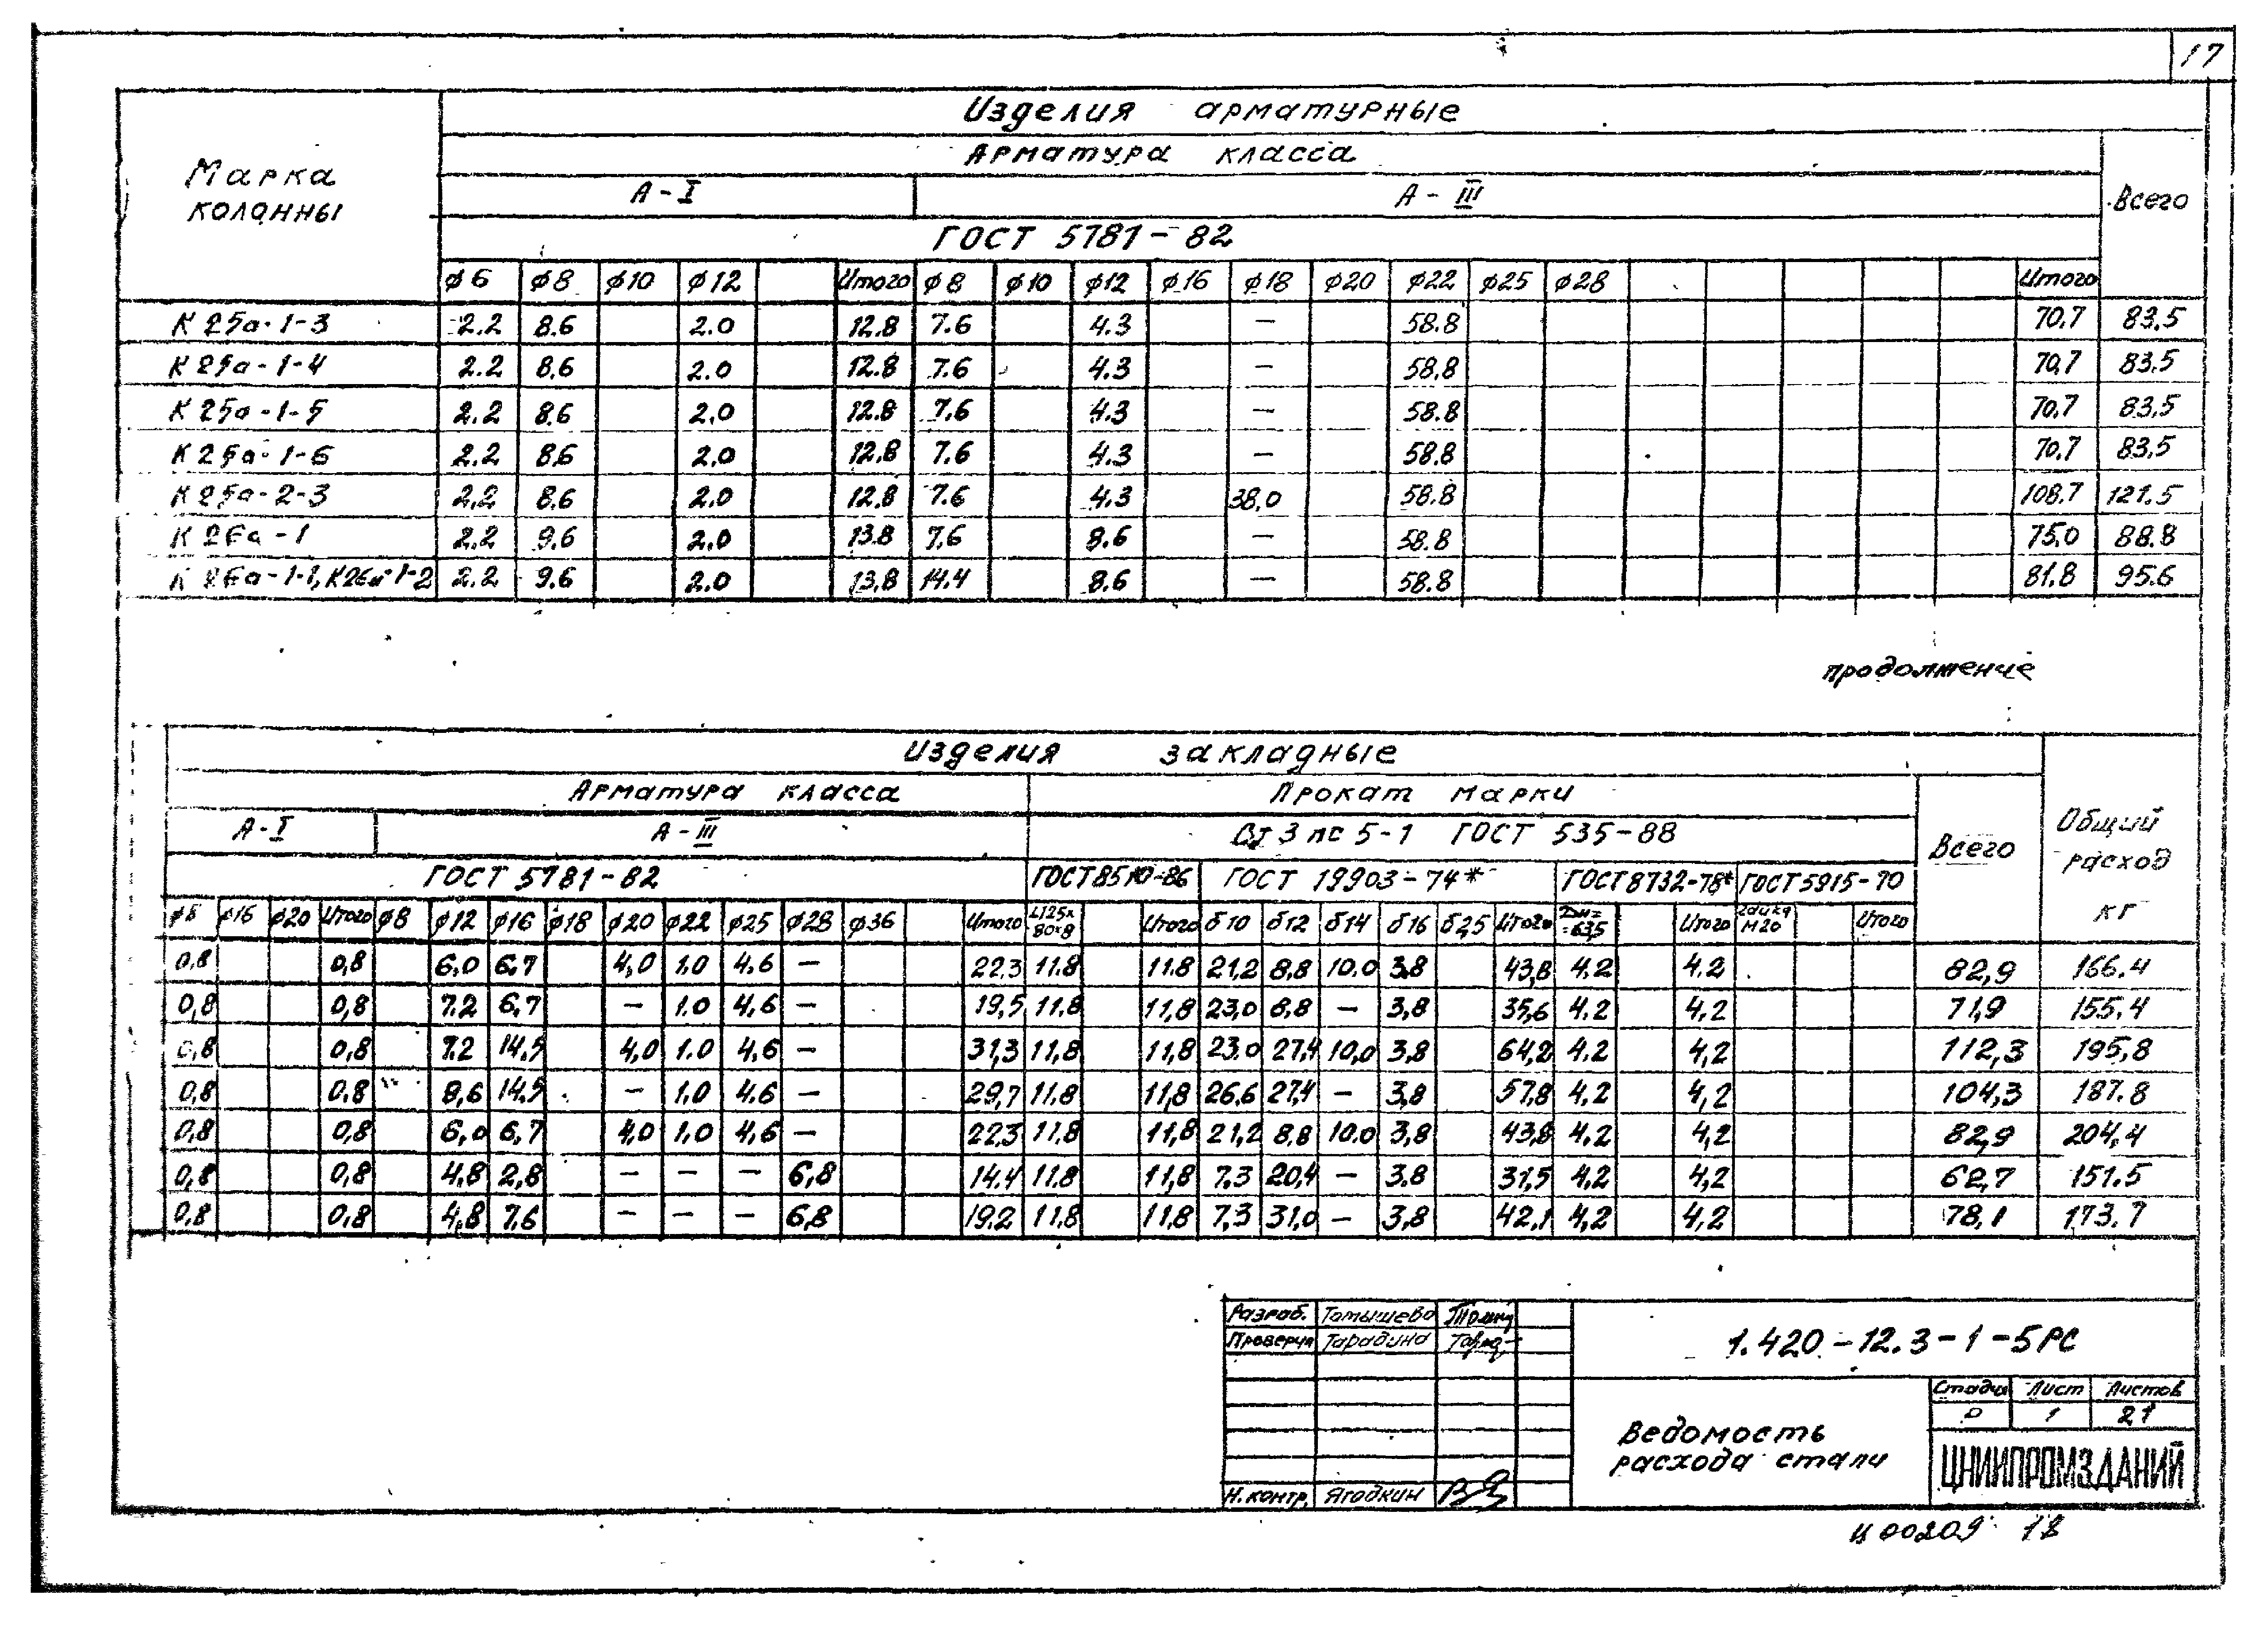 17
Изделия арматурные
Марка колонны
Арматура класса
Всего
А-I А-III
ГОСТ 5781-82
ф6 ф8 ф10 ф12 Итого ф8 ф10 ф12 ф16 ф18 ф20 ф22 ф25 ф28 Итого
К 25а-1-3 2.2 8.6 2.0 12.8 7.6 4.3 — 58.8 70.7 83.5
К 25а-1-4 2.2 8.6 2.0 12.8 7.6 4.3 — 58.8 70,7 83.5
К 25а-1-5 2.2 8.6 2.0 12.8 7.6 4.3 — 58.8 70.7 83.5
К 25а-1-6 2.2 8.6 2.0 12.8 7.6 4.3 — 58.8 70.7 83.5
К 25а-2-3 2.2 8.6 2.0 12.8 7.6 4.3 38,0 58.8 108.7 121.5
К 26а-1 2.2 9.6 2.0 13.8 7.6 8.6 — 58.8 75,0 88.8
К 26а-1-1, К26а-1-2 2.2 9.6 2.0 13.8 14.4 8.6 — 58.8 81.8 95.6
продолжение
Изделия закладные
Арматура класса Прокат марки
А-I А-III Ст 3 пс 5-1 ГОСТ 535-88
Всего
Общий расход кг
ГОСТ 5781-82 ГОСТ 8510-86 ГОСТ 19903-74* ГОСТ 8732-78* ГОСТ 5915-70
ф8 ф16 ф20 Итого ф8 ф12 ф16 ф18 ф20 ф22 ф25 ф28 ф36 Итого L125х80х8 Итого б10 б12 б14 б16 б25 Итого Дн=63,5 Итого гайка М20 Итого
0,8 0,8 6,0 6,7 4,0 1.0 4.6 — 22.3 11.8 11.8 21,2 8,8 10.0 3.8 43,8 4.2 4.2 82,9 166.4
0,8 0,8 7.2 6,7 — 1.0 4.6 — 19,5 11.8 11,8 23,0 8,8 — 3,8 35,6 4.2 4,2 71,9 155.4
0,8 0,8 7.2 14.5 4,0 1.0 4.6 — 31,3 11,8 11,8 23.0 27,4 10,0 3,8 64,2 4.2 4,2 112,3 195,8
0,8 0,8 8,6 14.5 — 1.0 4.6 — 29,7 11.8 11,8 26,6 27,4 — 3,8 57,8 4,2 4,2 104,3 187.8
0,8 0,8 6,0 6,7 4,0 1.0 4,6 — 22,3 11,8 11,8 21,2 8,8 10.0 3,8 43,8 4,2 4,2 82,9 204,4
0,8 0,8 4,8 2,8 — — — 6,8 14.4 11.8 11,8 7.3 20,4 — 3.8 31,5 4,2 4,2 62,7 151.5
0,8 0,8 4,8 7,6 — — — 6,8 19.2 11,8 11,8 7,3 31,0 — 3,8 42,1 4,2 4,2 78,1 173.7
Разраб. Томышева
Проверил Тарадина
1.420-12.3-1-5РС
Стадия Лист Листов
Р 1 21
Ведомость
расхода стали
ЦНИИПРОМЗДАНИЙ
Н. контр. Ягодкин
Ц 00209 18